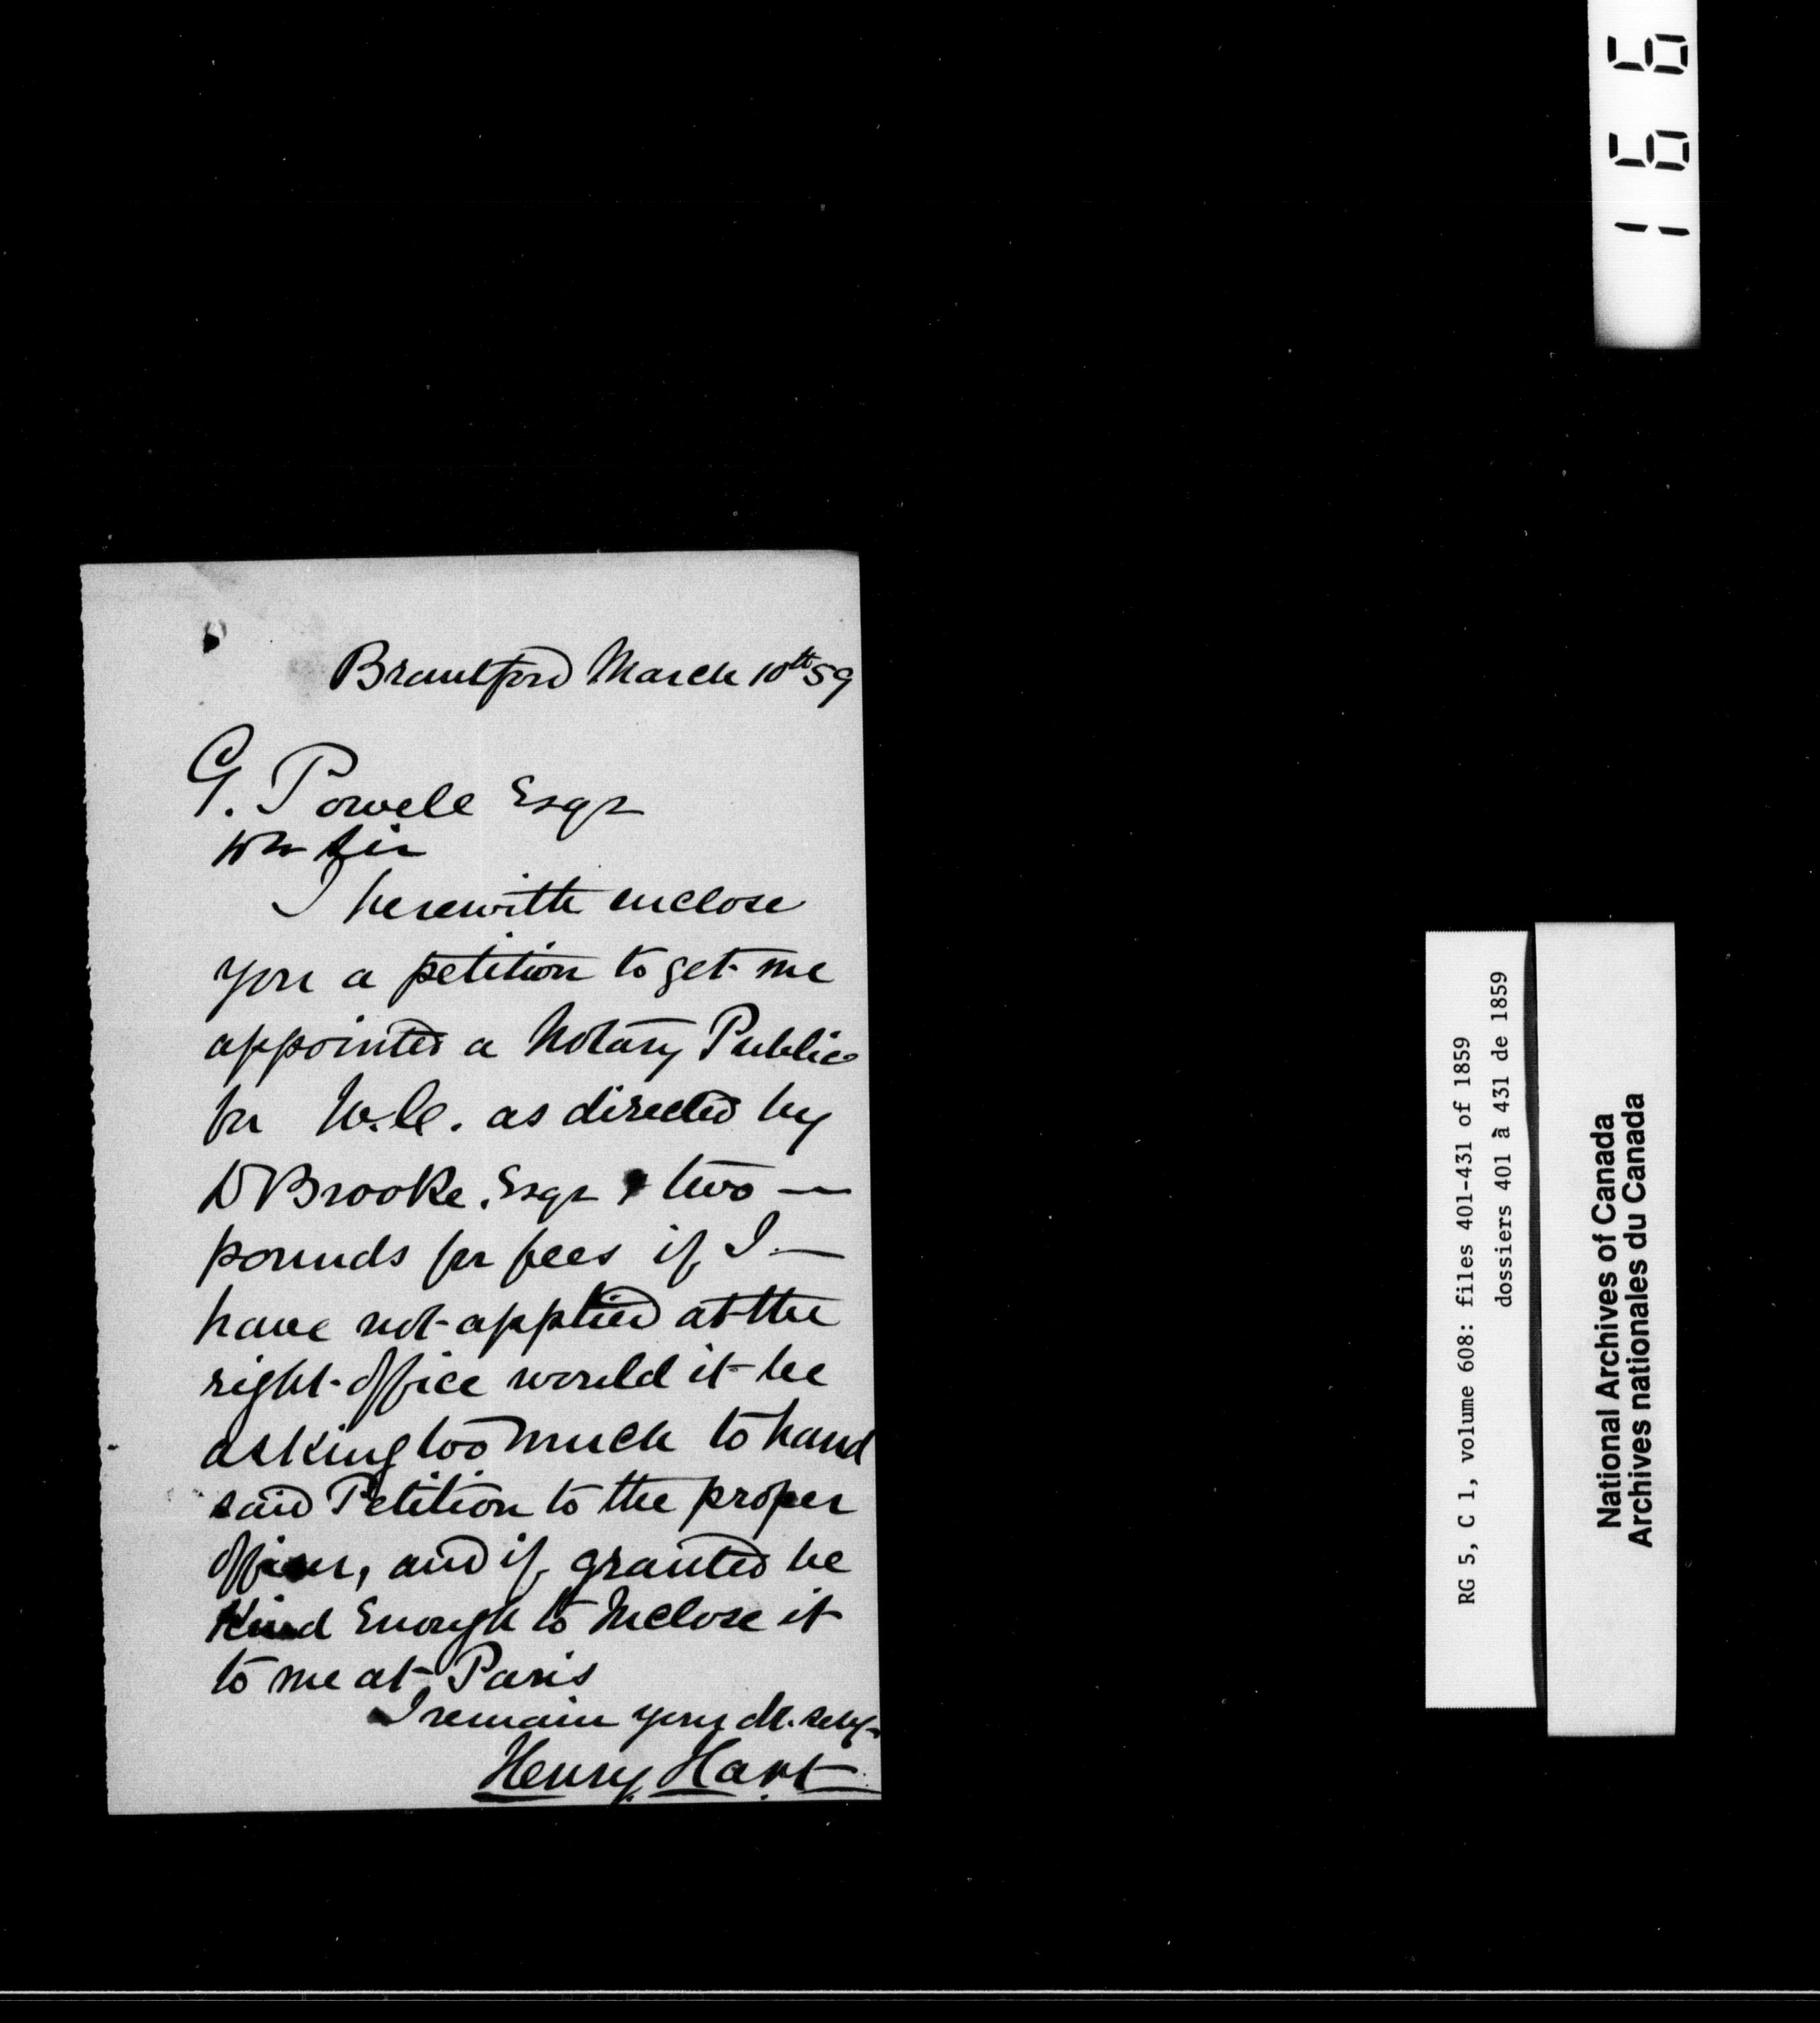 Brantford March 10th 59
G. Powell Esqr
Dr Sir
I herewith enclose
you a petition to get me
appointed a Notary Public
for U.C. as directed by
D Brooke. Esqr & two —
pounds for fees if I —
have not applied at the
right office would it be
asking too much to hand
said Petition to the proper
officer, and if granted be
Kind Enough to Inclose it
to me at Paris
I remain your
Henry Hart
166
RG 5, C 1, volume 608: files 401-431 of 1859
dossiers 401 à 431 de 1859
National Archives of Canada
Archives nationales du Canada